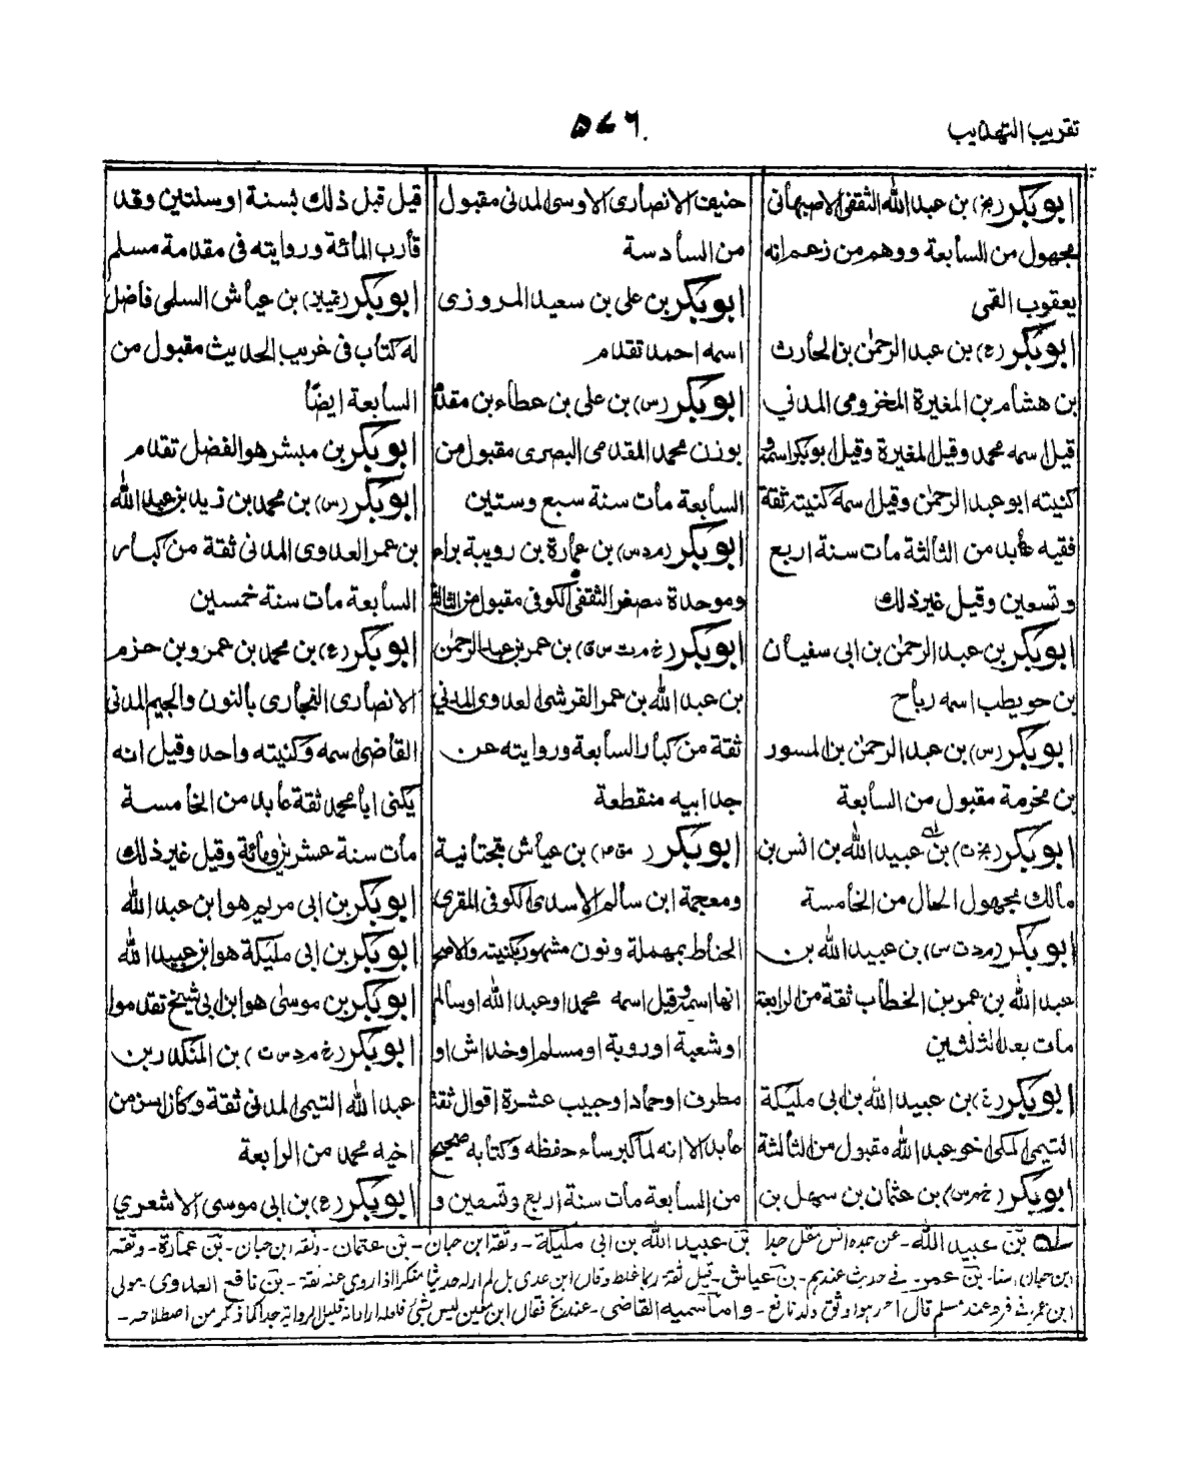 تقريب التهذيب
٥٤٦
ابوبكر (بخ) بن عبدالله الثقفى الاصبهانى
مجهول من السابعة ووهم من زعم انه
يعقوب القمى
ابوبكر (ع) بن عبدالرحمٰن بن الحارث
بن هشام بن المغيرة المخزومى المدني
قيل اسمه محمد وقيل المغيرة وقيل ابوبكر اسمه و
كنيته ابو عبدالرحمٰن وقيل اسمه كنيته ثقة
فقيه عابد من الثالثة مات سنة اربع
وتسعين وقيل غير ذلك
ابوبكر بن عبدالرحمٰن بن ابى سفيان
بن حويطب اسمه رباح
ابوبكر (س) بن عبدالرحمٰن بن المسور
بن مخرمة مقبول من السابعة
ابوبكر (بخ ت) بن عبيدالله بن انس بن
مالك مجهول الحال من الخامسة
ابوبكر (مدت س) بن عبيدالله بن
عبدالله بن عمر بن الخطاب ثقة من الرابعة
مات بعد الثلثين
ابوبكر (خ) بن عبيدالله بن ابى مليكة
التيمى المكى اخو عبدالله مقبول من الثالثة
ابوبكر (خ م س) بن عثمان بن سهل بن
حنيف الانصارى الاوسى المدنى مقبول
من السادسة
ابوبكر بن على بن سعيد المروزى
اسمه احمد تقدم
ابوبكر (س) بن على بن عطاء بن مقدم
بوزن محمد المقدمى البصرى مقبول من
السابعة مات سنة سبع وستين
ابوبكر (م د س) بن عمارة بن رويبة براء
وموحدة مصغر الثقفى الكوفى مقبول من الثالثة
ابوبكر (خ م ت س ق) بن عمر بن عبدالرحمٰن
بن عبدالله بن عمر القرشى العدوى المدني
ثقة من كبار السابعة وروايته عن
جد ابيه منقطعة
ابوبكر (مق عه) بن عياش بتحتانية
ومعجمة ابن سالم الاسدى الكوفى المقرى
الحناط بمهملة ونون مشهور بكنيته والاصح
انها اسمه وقيل اسمه محمد او عبدالله اوسالم
اوشعبة اورؤبة اومسلم اوخداش او
مطرف اوحماد اوحبيب عشرة اقوال ثقة
عابد الا انه لما كبر ساء حفظه وكتابه صحيح
من السابعة مات سنة اربع وتسعين و
قيل قبل ذلك بسنة اوسنتين وقد
قارب المائة وروايته فى مقدمة مسلم
ابوبكر (تمييز) بن عياش السلمى فاضل
له كتاب فى غريب الحديث مقبول من
السابعة ايضًا
ابوبكر بن مبشر هو الفضل تقدم
ابوبكر (س) بن محمد بن زيد بن عبدالله
بن عمر العدوى المدنى ثقة من كبار
السابعة مات سنة خمسين
ابوبكر (ع) بن محمد بن عمرو بن حزم
الانصارى النجارى بالنون والجيم المدنى
القاضى اسمه وكنيته واحد وقيل انه
يكنى ابا محمد ثقة عابد من الخامسة
مات سنة عشرين ومائة وقيل غير ذلك
ابوبكر بن ابى مريم هو ابن عبدالله
ابوبكر بن ابى مليكة هو ابن عبيدالله
ابوبكر بن موسى هو ابن ابى شيخ تقدموا
ابوبكر (خ م د س ت) بن المنكدر بن
عبدالله التيمى المدنى ثقة وكان اسن من
اخيه محمد من الرابعة
ابوبكر (ع) بن ابى موسى الاشعري
بن عبيد الله - عن جده انس مقل جدا بن عبيد الله بن ابى مليكة - وثقه ابن حبان - بن عثمان - وثقه ابن حبان - بن عمارة - وثقه
ابن حبان بن عمر - فى حديث عندهم - بن عياش - قيل ثقة ربما غلط وقال ابن عدى بل لم ار له حديثا منكرا اذا روى عنه ثقة - بن نافع العدوى - مولى
ابن عمر فرد عند مسلم قال احمد هو اوثق ولد نافع - واما سميه القاضى - فقال ابن معين ليس بشئ